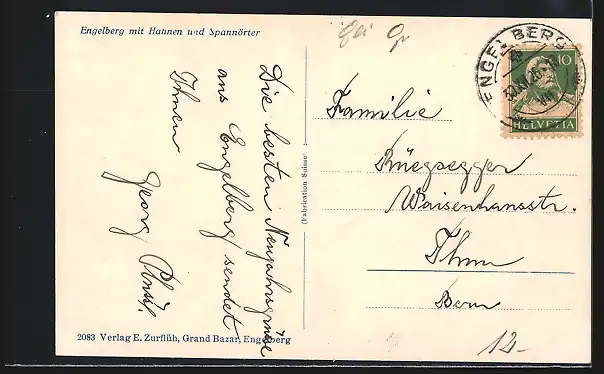 Engelberg mit Hahnen und Spannörter
Die besten Neujahrsgrüsse
aus Engelberg sendet
Ihnen
Georg
(Fabrication Suisse)
2083 Verlag E. Zurflüh, Grand Bazar, Engelberg
ENGELBERG
10
HELVETIA
Familie
Rüegsegger
Waisenhausstr.
Thun
Bern
12.-